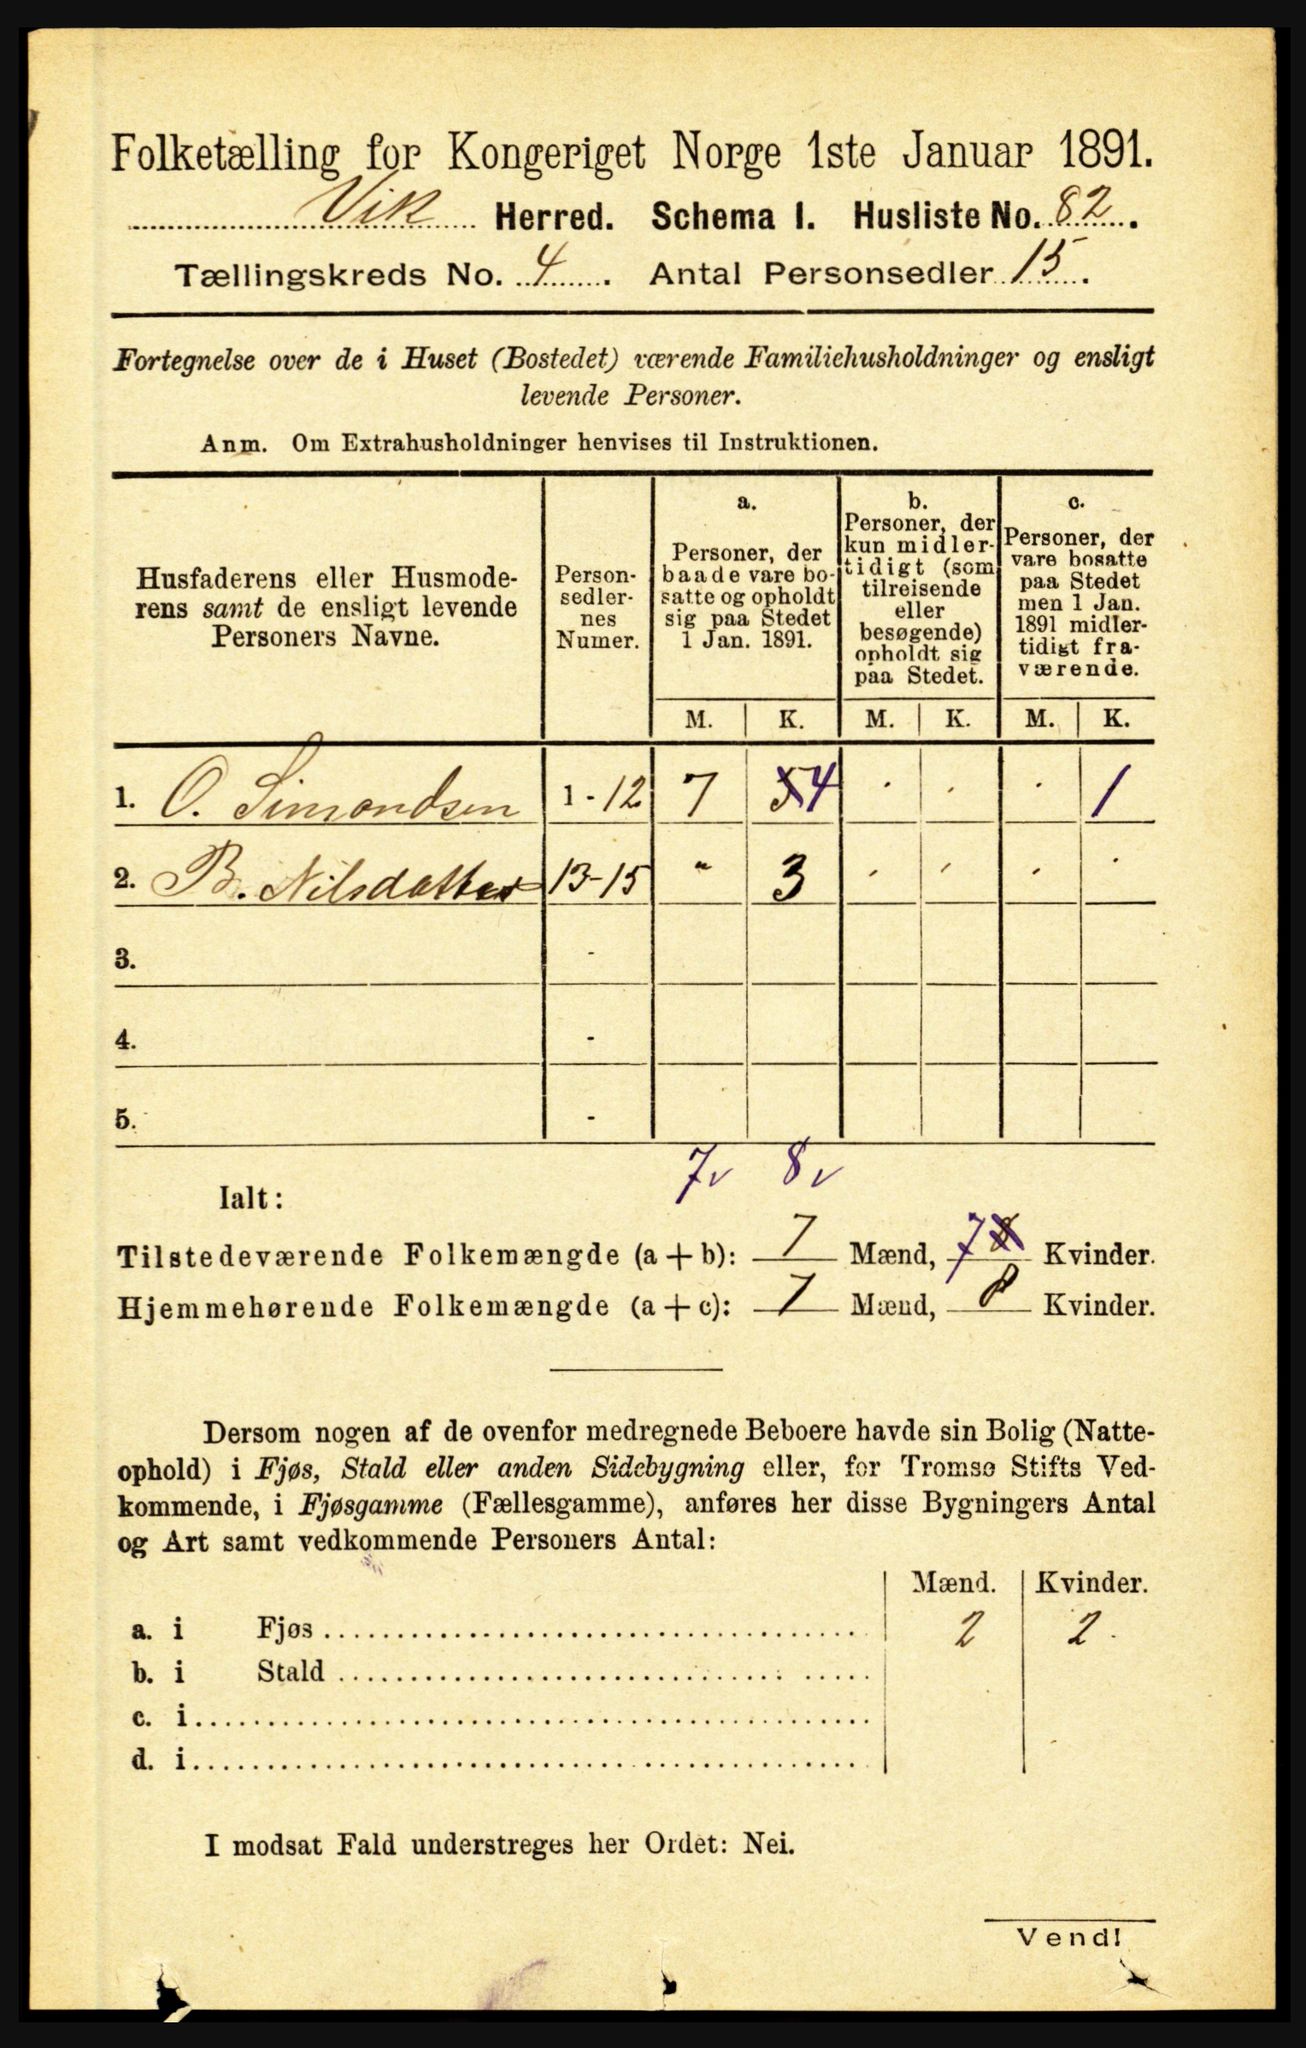 Folketælling for Kongeriget Norge 1ste Januar 1891.
Vik Herred. Schema I. Husliste No. 82.
Tællingskreds No. 4. Antal Personsedler 15.
Fortegnelse over de i Huset (Bostedet) værende Familiehusholdninger og ensligt
levende Personer.
Anm. Om Extrahusholdninger henvises til Instruktionen.
Husfaderens eller Husmode-
rens samt de ensligt levende
Personers Navne.
Person-
sedler-
nes
Numer.
a.
Personer, der
baade vare bo-
satte og opholdt
sig paa Stedet
1 Jan. 1891.
b.
Personer, der
kun midler-
tidigt (som
tilreisende
eller
besøgende)
opholdt sig
paa Stedet.
c.
Personer, der
vare bosatte
paa Stedet
men 1 Jan.
1891 midler-
tidigt fra-
værende.
M. K. M. K. M. K.
1. O. Simondsen 1-12 7 5 4 . . . 1
2. B. Nilsdatter 13-15 " 3 . . . .
3. -
4. -
5. -
7v 8v
Ialt:
Tilstedeværende Folkemængde (a+b): 7 Mænd, 7 8 Kvinder.
Hjemmehørende Folkemængde (a+c): 7 Mænd, 8 Kvinder.
Dersom nogen af de ovenfor medregnede Beboere havde sin Bolig (Natte-
ophold) i Fjøs, Stald eller anden Sidebygning eller, for Tromsø Stifts Ved-
kommende, i Fjøsgamme (Fællesgamme), anføres her disse Bygningers Antal
og Art samt vedkommende Personers Antal:
Mænd. Kvinder.
a. i Fjøs 2 2.
b. i Stald
c. i
d. i
I modsat Fald understreges her Ordet: Nei.
Vend!